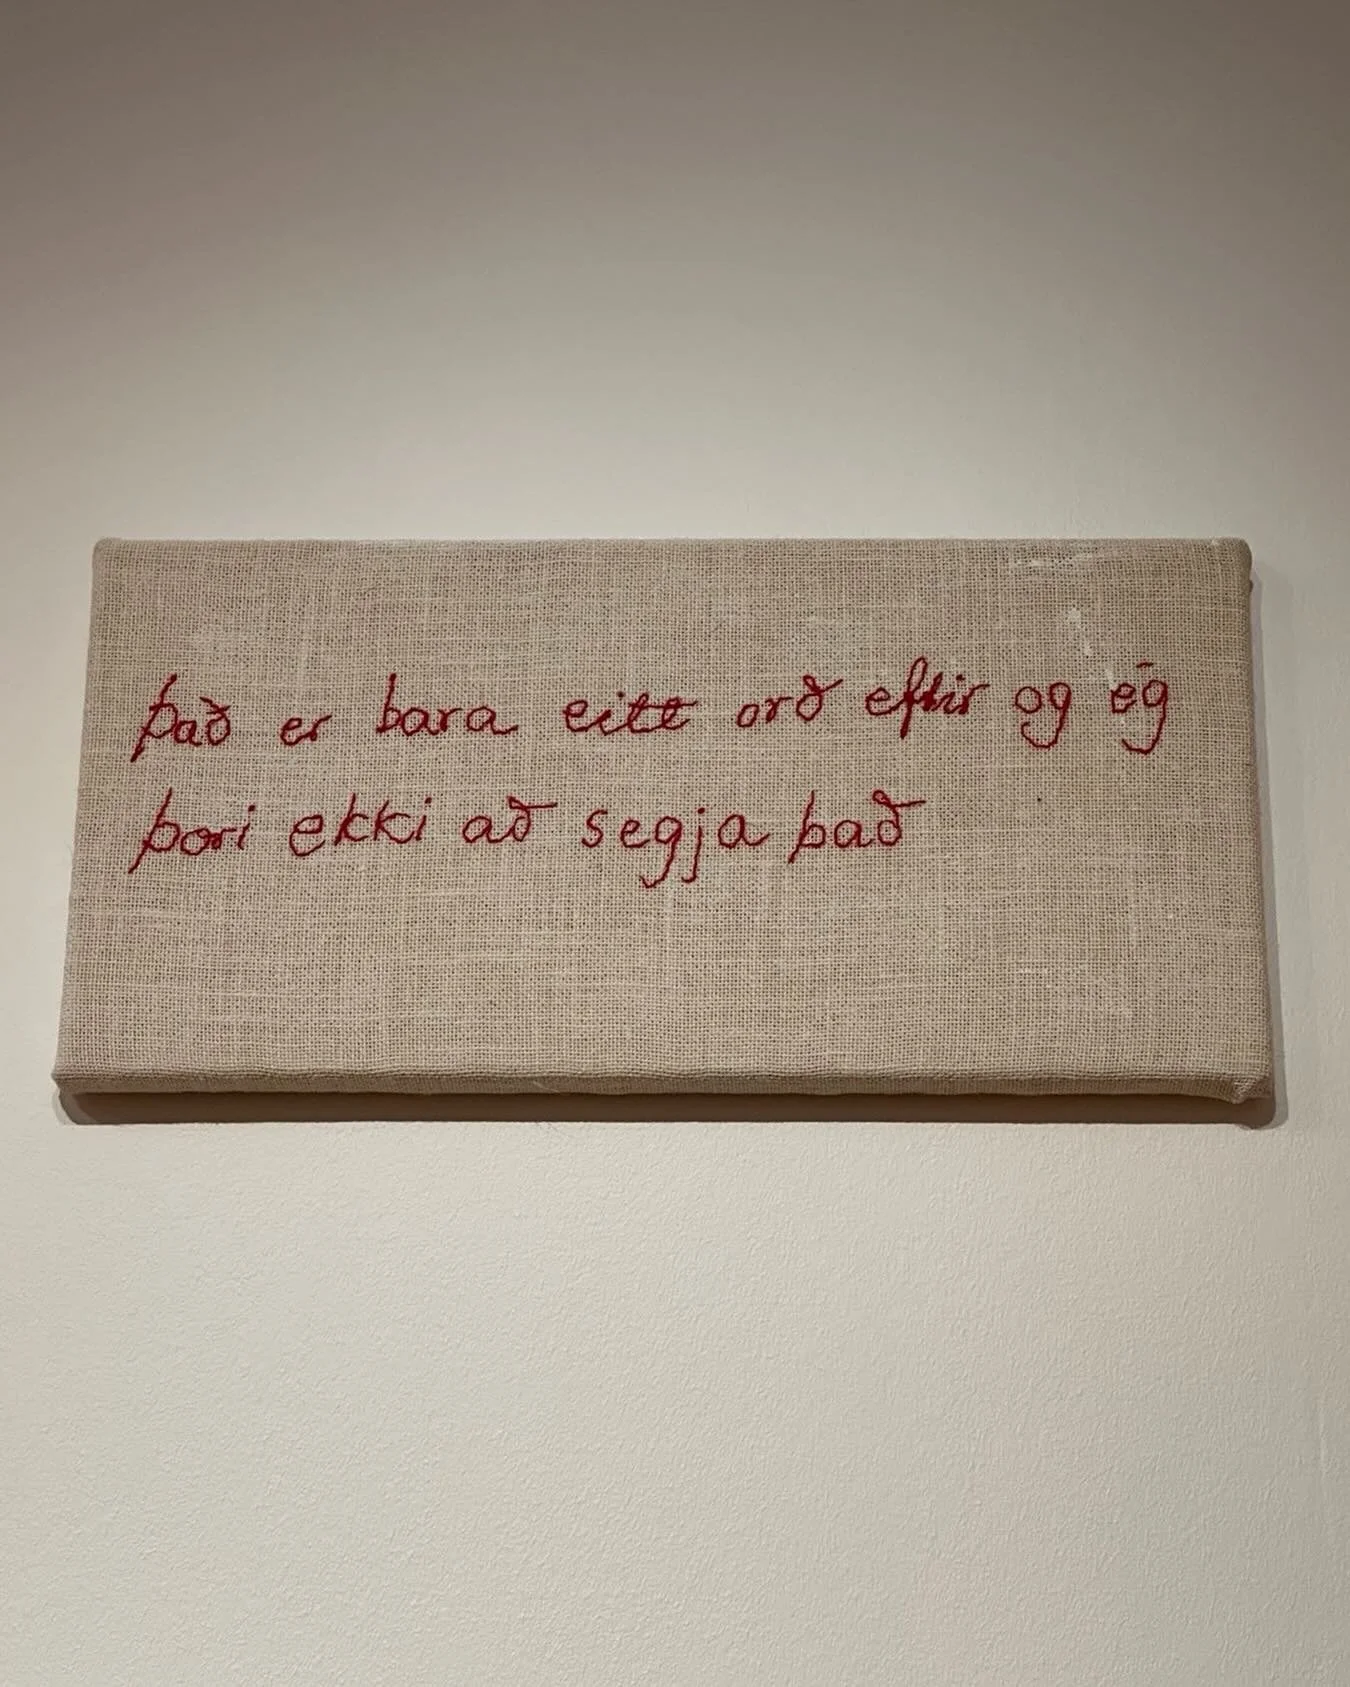 Það er bara eitt orð eftir og ég
þori ekki að segja það